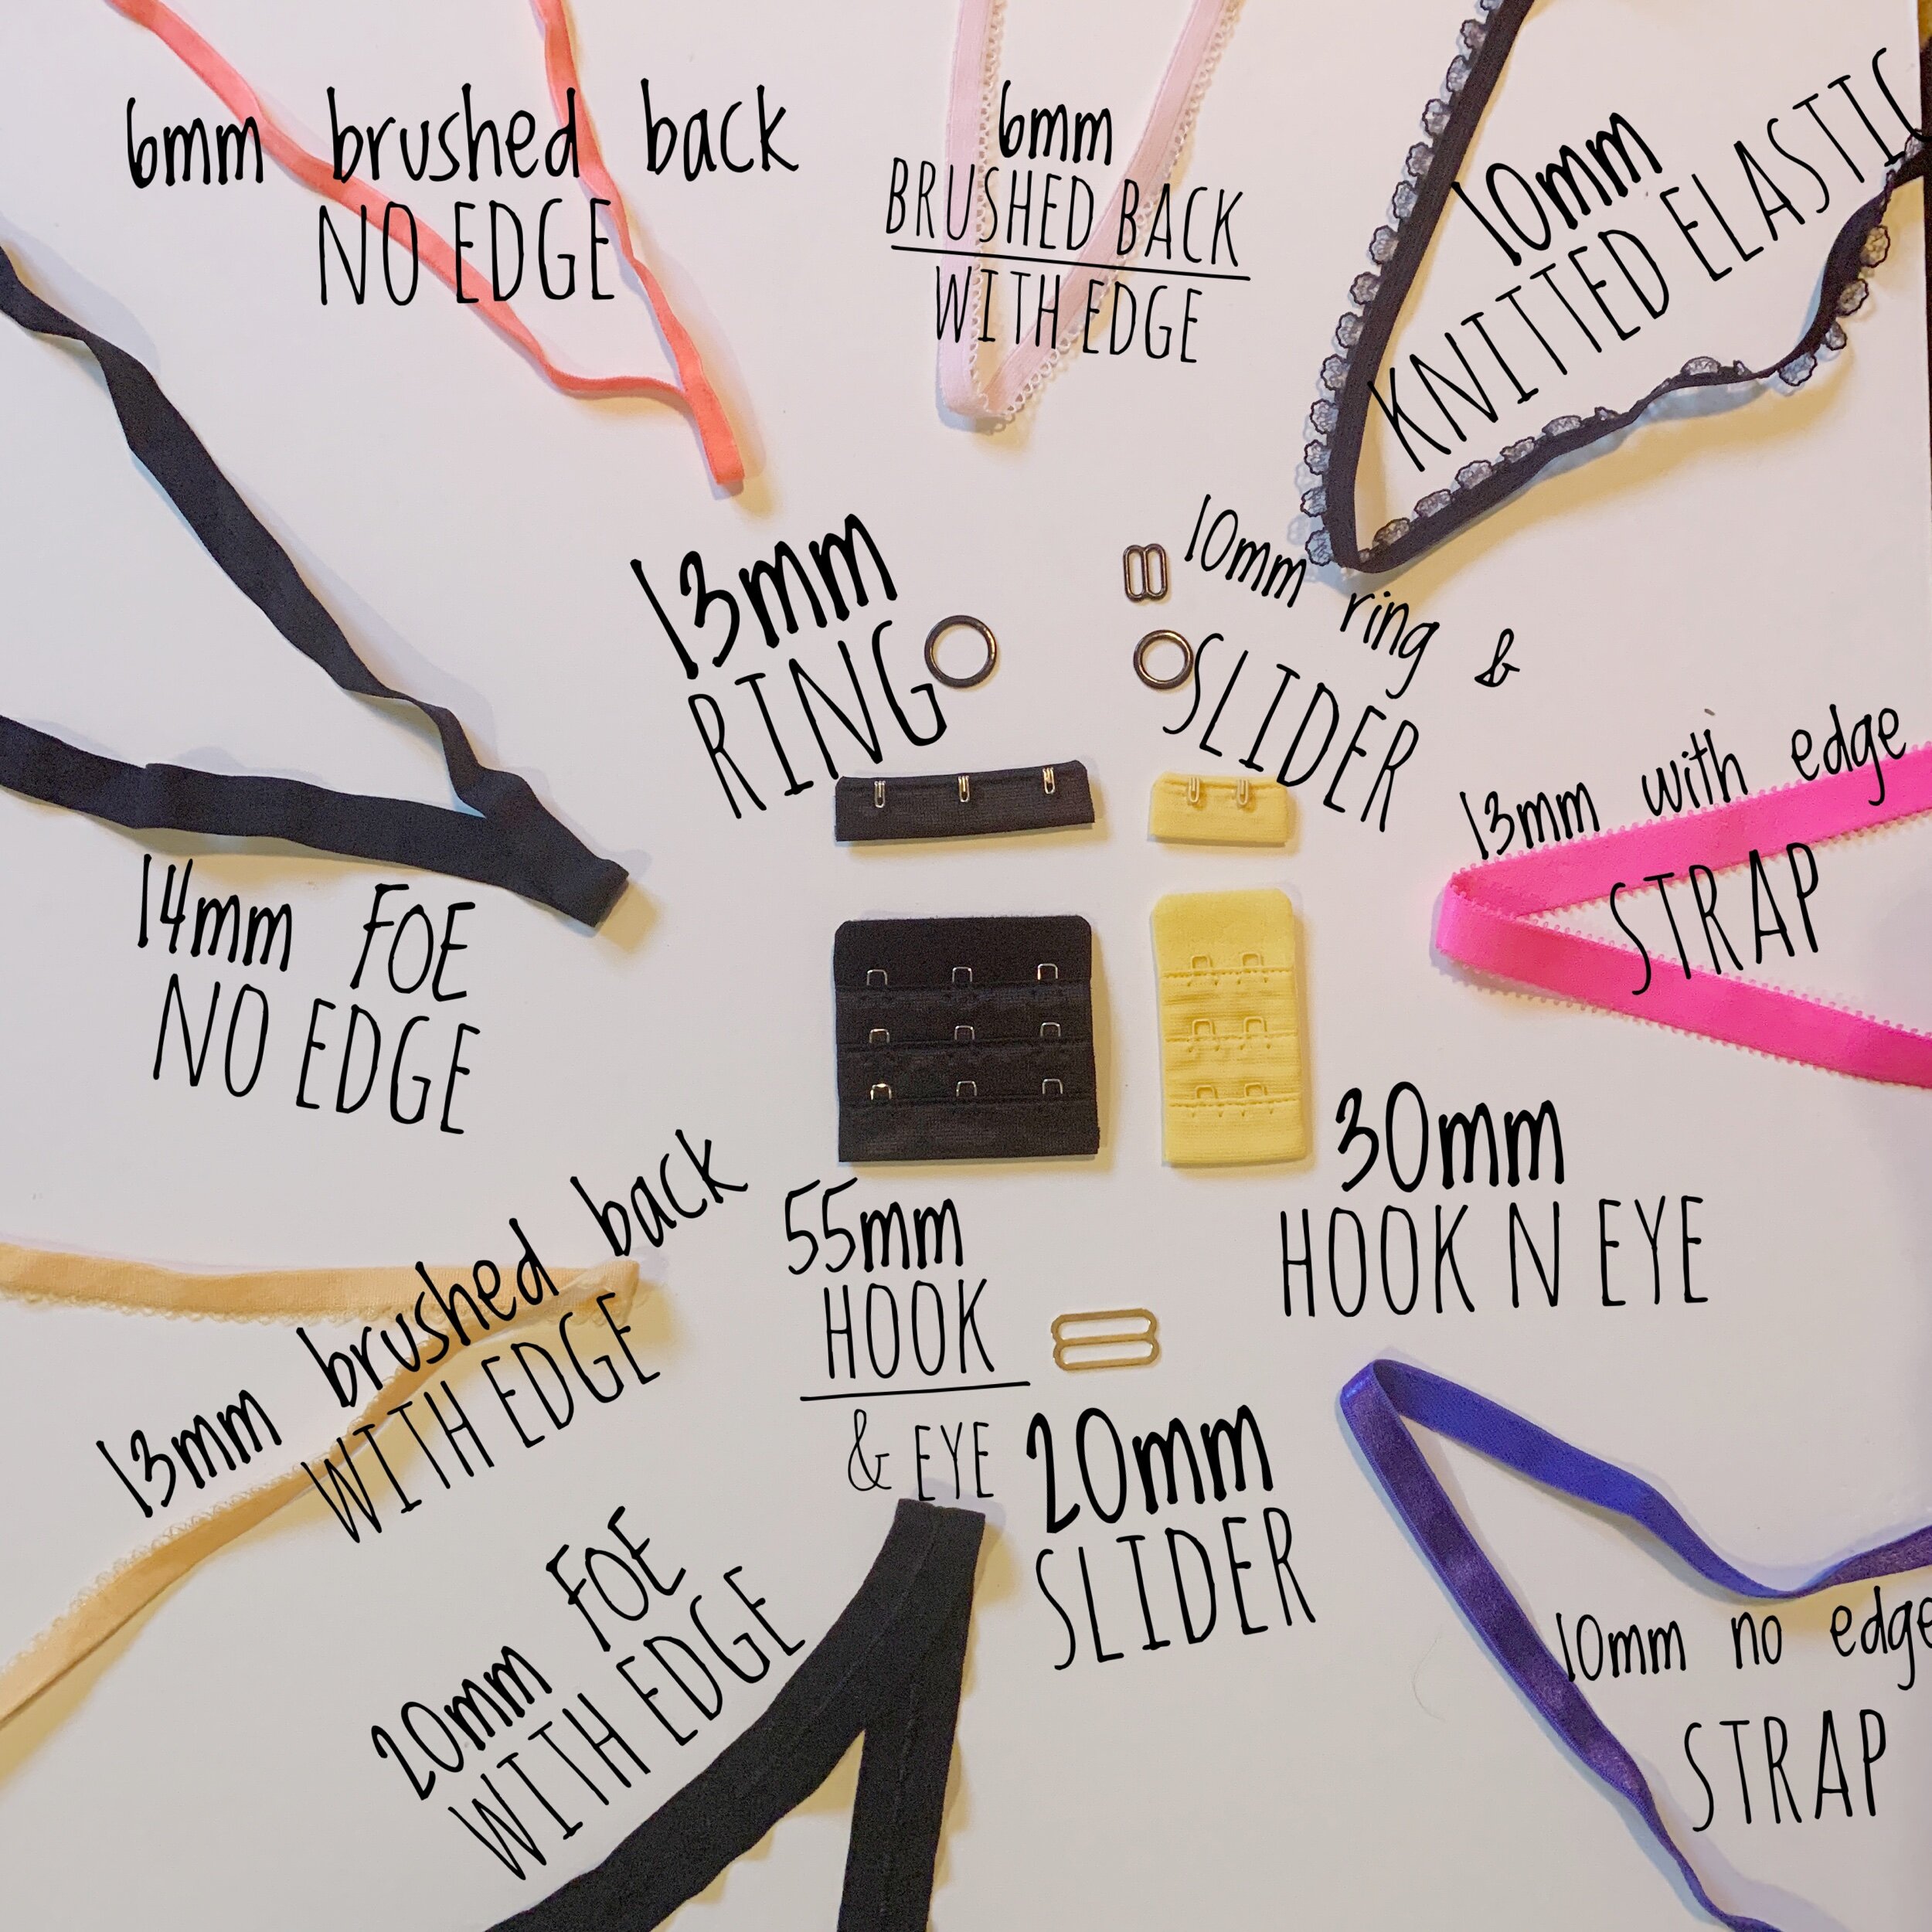 6mm brushed back
NO EDGE
6mm
BRUSHED BACK
WITH EDGE
10mm
KNITTED ELASTIC
13mm
RING
10mm ring &
SLIDER
13mm with edge
STRAP
14mm FOE
NO EDGE
30mm
HOOK N EYE
13mm brushed back
WITH EDGE
55mm
HOOK
& EYE
20mm
SLIDER
20mm FOE
WITH EDGE
10mm no edge
STRAP